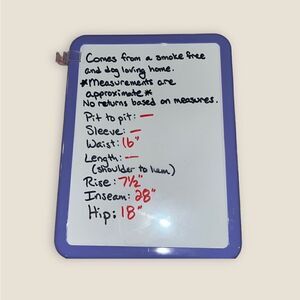 Comes from a smoke free
and dog loving home.
*Measurements are
approximate*
No returns based on measures.
Pit to pit: —
Sleeve: —
Waist: 16"
Length: —
(shoulder to hem)
Rise: 7½"
Inseam: 28"
Hip: 18"